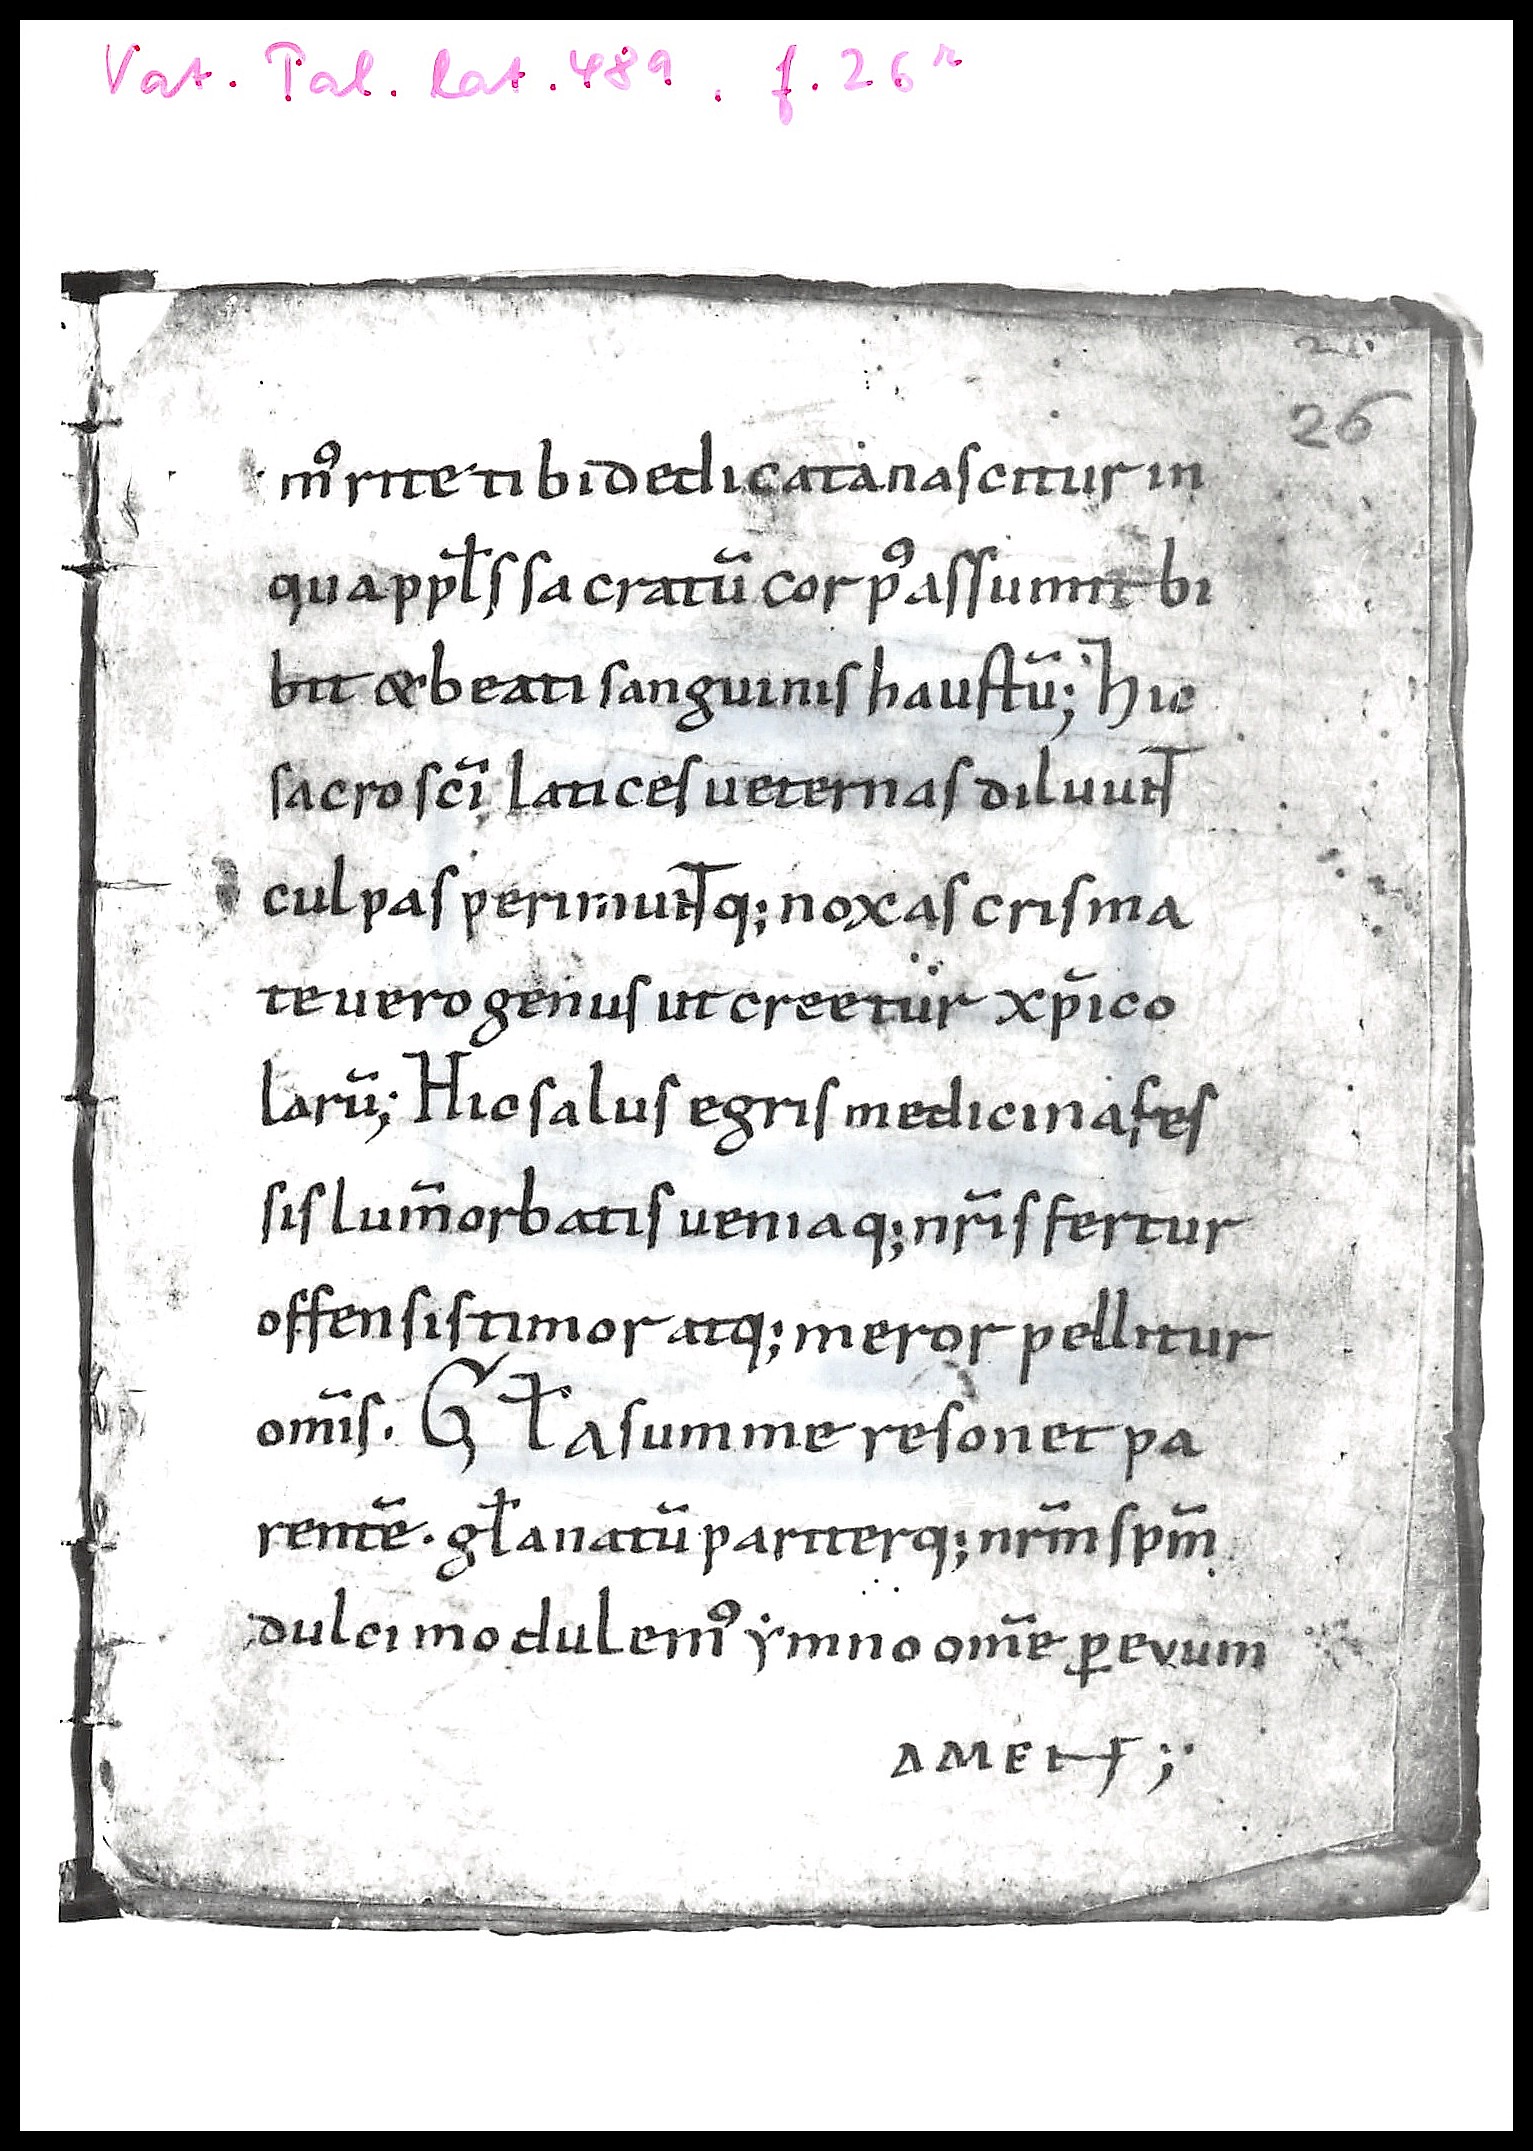 Vat. Pal. lat. 489. f. 26r
26
mꝰ rite tibi dedicata nascitur in
qua pp̄ls sacratū corpꝰ assumit bi
bit & beati sanguinis haustū; Hic
sacroscī latices ueternas diluunt̄
culpas perimunt̄q; noxas crisma
te uero genus ut creetur xp̄ico
larū; Hic salus egris medicina fes
sis lum̄ orbatis ueniaq; nr̄is fertur
offensis timor atq; meror pellitur
om̄is. Gl̄a summe resonet pa
rentē. gl̄a natū pariterq; nr̄m sp̄m
dulci modulemꝰ ẏmno om̄e ꝑ evum
AMEN;